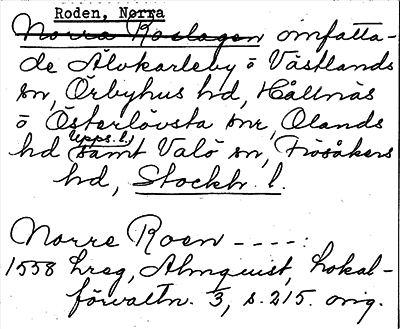 Roden, Norra
Norra Roslagen omfatta-
de Älvkarleby o Västlands
sn, Örbyhus hd, Hållnäs
o Österlövsta snr, Olands
hd Upps. l. samt Valö sn, Frösåkers
hd, Stockh. l.
Norre Roen ----:
1558 hreg, Almquist, Lokal-
förvaltn. 3, s. 215. orig.